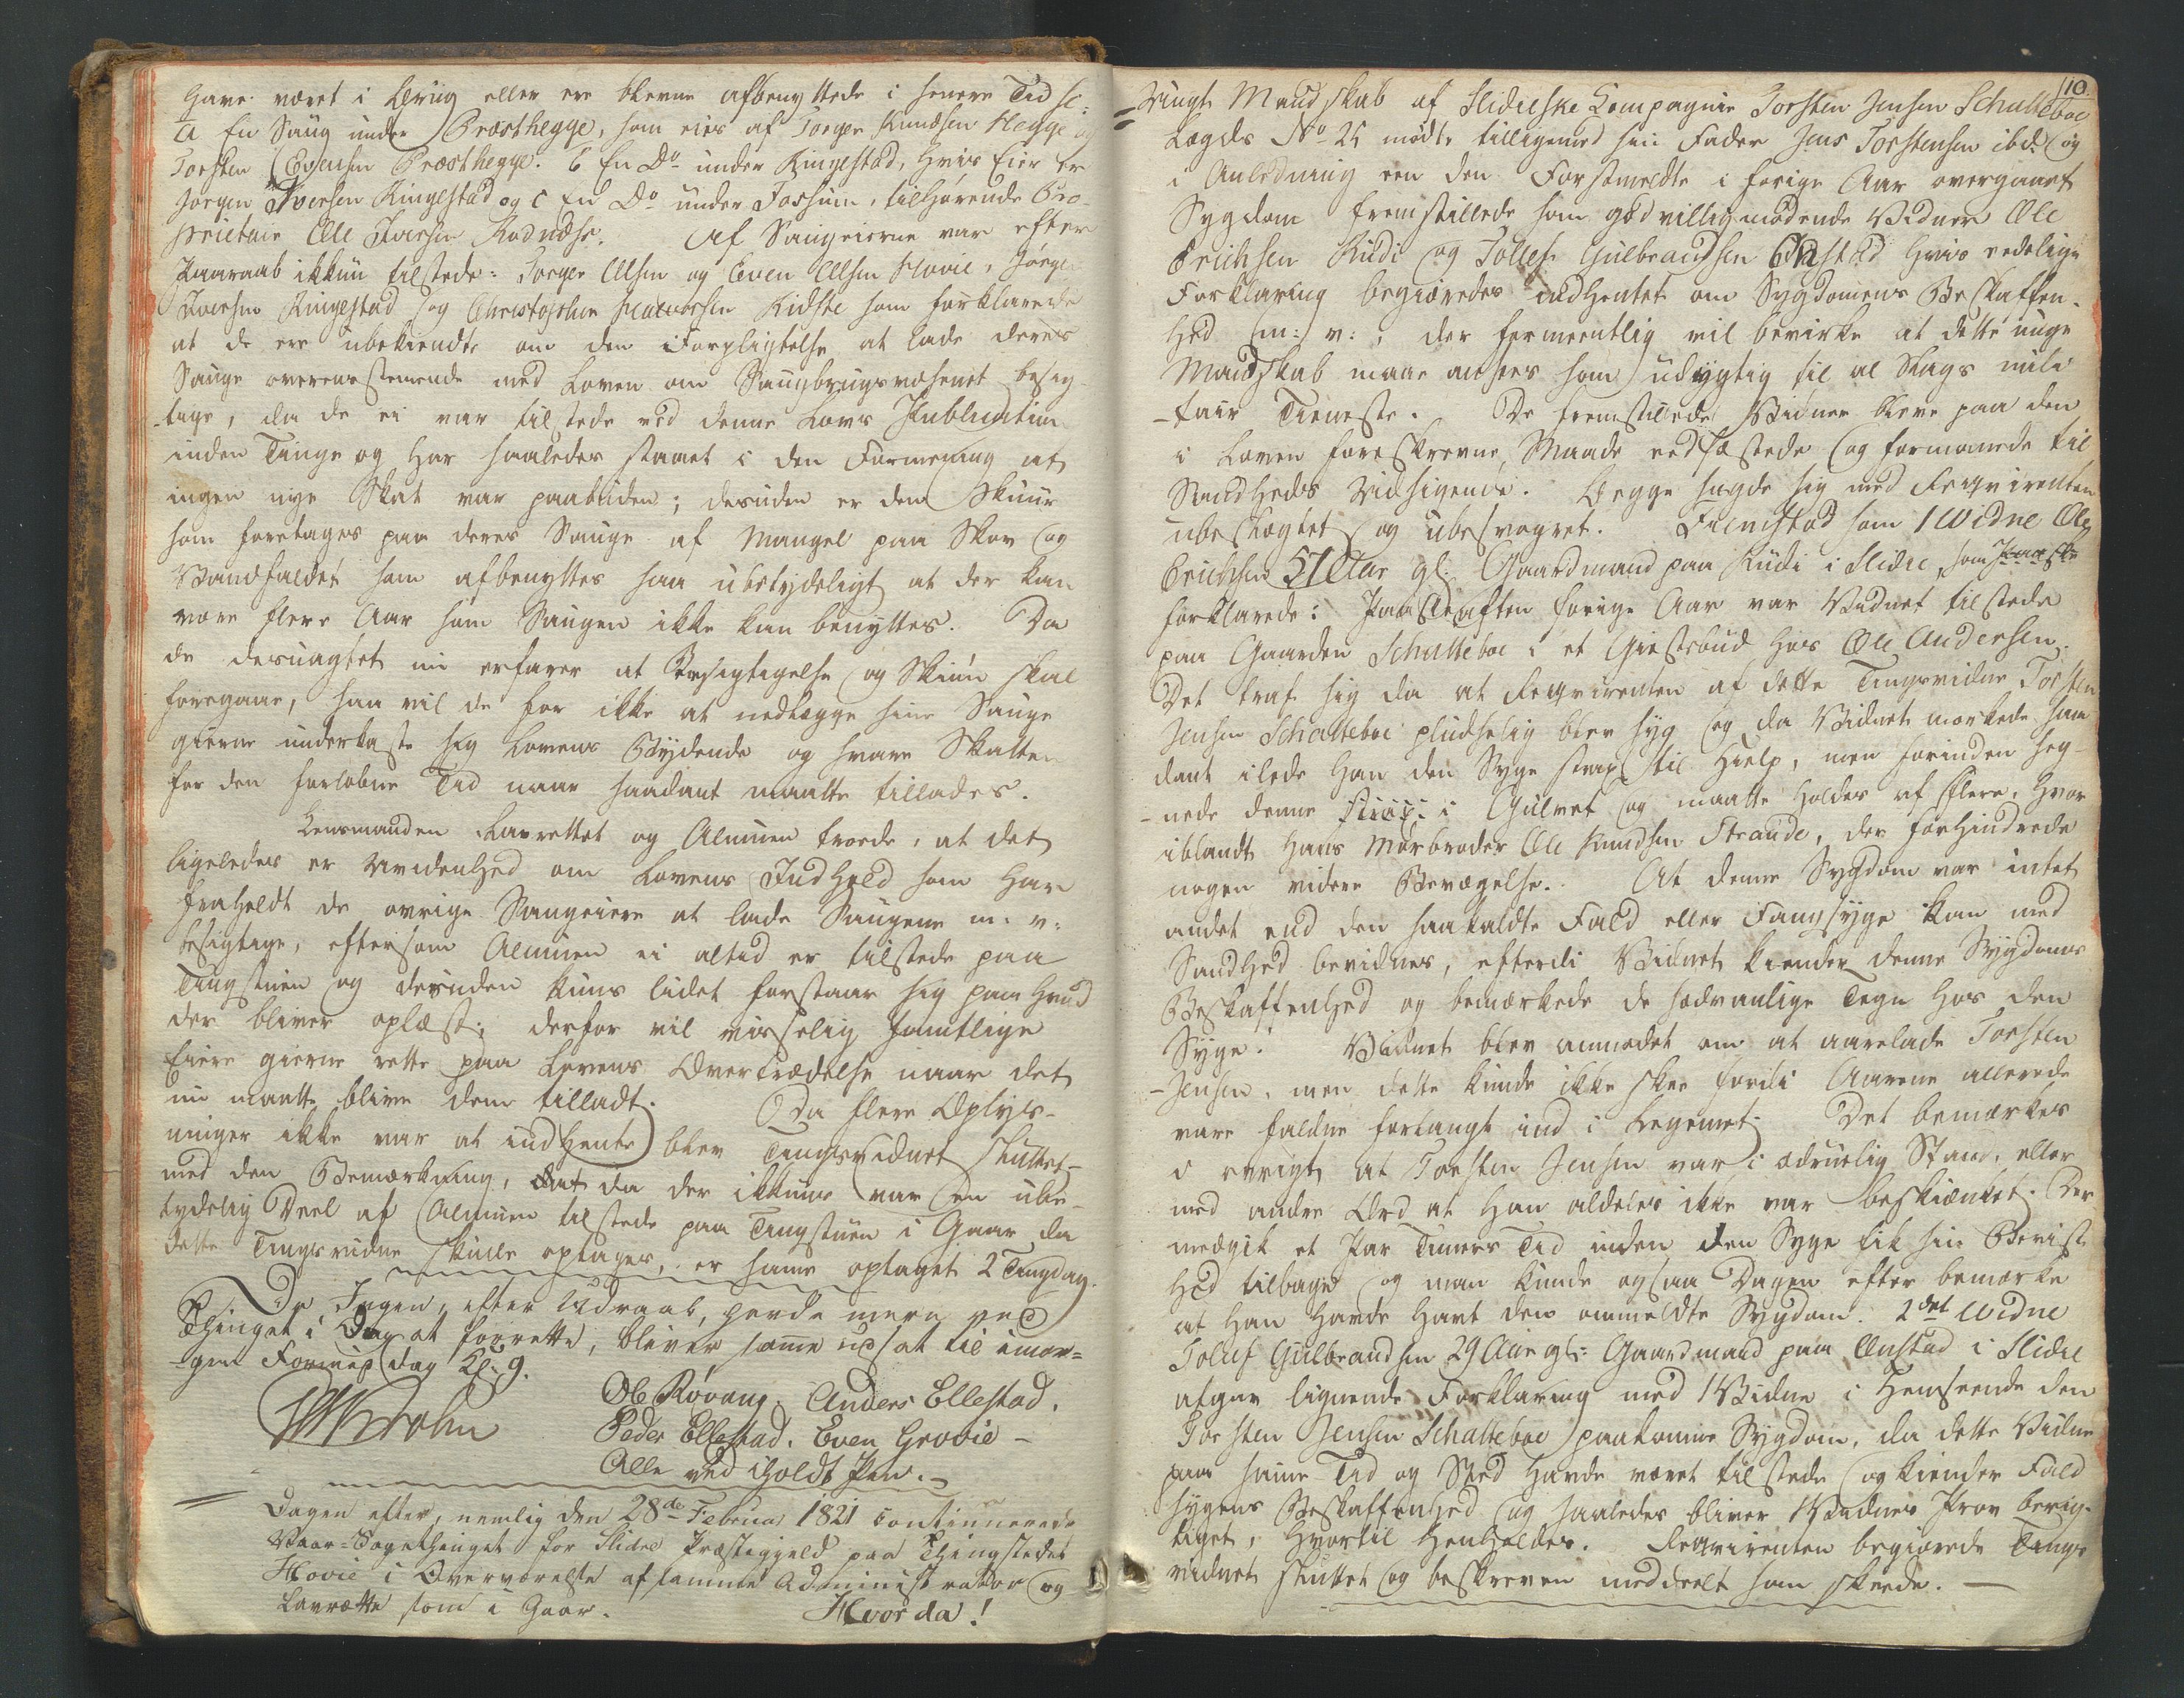 have været i Brug eller ere blevne afbenyttede i senere Tid se:
a En Saug under Præsthegge, som eies af Torger Knudsen Hegge og
Torsten Evensen Præsthegge. b En Do under Ringestad, hvis Eier er
Jørgen Iversen Ringestad og c En Do under Fossum, tilhørende Pro-
prietair Ole Iversen Rodnæss. Af Saugeierne var efter
Paaraab ikkun tilstede: Torger Olsen og Even Olsen Hovie, Jørgen
Iversen Ringestad og Christopher Halvorsen Ridste som forklarede
at de ere ubekiendte om den Forpligtelse at lade deres
Sauge overensstemende med Loven om Saugbrugsvæsenet besig-
tige, da de ei var tilstede ved denne Lovs Publication
inden Tinge og har saaledes staaet i den Formening at
ingen nye Skat var paabuden; desuden er den Skuur
som foretages paa deres Sauge af Mangel paa Skov og
Vandfaldet som afbenyttes saa ubetydeligt at der kan
være flere Aar som Saugen ikke kan benyttes. Da
de desuagtet nu erfarer at Besigtigelse og Skiøn skal
foregaae, saa vil de for ikke at nedlægge sine Sauge
gierne underkaste sig Lovens Bydende og svare Skatten
for den forløbne Tid naar saadant maatte tillades.
Lensmanden Lavrettet og Almuen troede, at det
ligeledes er Uvidenhed om Lovens Indhold som har
fraholdt de øvrige Saugeiere at lade Saugene m. v.
besigtige, eftersom Almuen ei altid er tilstede paa
Tingstuen og desuden kuns lidet forstaar sig paa hvad
der bliver oplæst; derfor vil visselig samtlige
Eiere gierne rette paa Lovens Overtrædelse naar det
nu maatte blive dem tilladt. Da flere Oplys-
ninger ikke var at indhente blev Tingsvidnet sluttet
med den Bemærkning, at da der ikkuns var en ube-
tydelig Deel af Almuen tilstede paa Tingstuen i Gaar da
dette Tingsvidne skulle optages, er samme optaget 2 Tingdag.
Da Ingen, efter Udraab, havde mere ved
Thinget i Dag at forrette, bliver samme udsat til imor-
gen Formiddag Kl: 9.
Ole Røvang. Anders Ellestad.
Peder Ellestad. Even Grovie -
Alle ved iholdt Pen. -
Dagen efter, nemlig den 28de Februar 1821 continuerede
Vaar-Sagethinget for Slidre Præstegjeld paa Thingstedet
Hovie i Overværelse af samme Administrator og
Lavrætte som i Gaar. Hvor da!
10.
Unge Mandskab af Slidreske Compagnie Torsten Jensen Schatteboe
Lægds No 25 mødte tilligemed sin Fader Jens Torstensen ibd: og
i Anledning een den Førstmeldte i forige Aar overgaaet
Sygdom fremstillede som godvillig mødende Vidner Ole
Erichsen Rudi og Tollef Gulbrandsen Onstad hvis edelige
Forklaring begiæredes indhentet om Sygdomens Beskaffen-
hed m: v: , der formeentlig vil bevirke at dette unge
Mandskab maae ansees som udygtig til al Slags mili-
tair Tieneste. De fremstillede Vidner bleve paa den
i Loven foreskrevne Maade eedfæstede og formanede til
Sandheds Udsigende. Begge sagde sig med Reqvirenten
ubeslægtet og ubesvogret. Fremstod som 1 Vidne Ole
Erichsen 51 Aar gl. Gaardmand paa Rudi i Slidre, som
forklarede: Paaskeaften forige Aar var Vidnet tilstede
paa Gaarden Schatteboe i et Giestebud hos Ole Andersen.
Det traf sig da at Reqvirenten af dette Tingsvidne Torsten
Jensen Schatteboe pludselig blev syg og da Vidnet mærkede saa-
dant ilede han den Syge strax til Hielp, men forinden seg-
nede denne strax i Gulvet og maatte holdes af flere, hvor
iblandt hans Morbroder Ole Knudsen Strande, der forhindrede
nogen videre Bevægelse. At denne Sygdom var intet
andet end den saakaldte Fald eller Fangsyge kan med
Sandhed bevidnes, efterdi Vidnet kiender denne Sygdoms
Beskaffenhed og bemærkede de sædvanlige Tegn hos den
Syge. Vidnet blev anmodet om at aarelade Torsten
Jensen, men dette kunde ikke skee fordi Aarene allerede
vare faldne forlangt ind i Legemet. Det bemærkes
i øvrigt at Torsten Jensen var i ædruelig Stand, eller
med andre Ord at han aldeles ikke var beskiænket. Der
medgik et Par Timers Tid inden den Syge fik sin Bevist-
hed tilbage og man kunde ogsaa Dagen efter bemærke
at han havde havt den ommeldte Sygdom. 2det Vidne
Tollef Gulbrandsen 29 Aar gl: Gaardmand paa Onstad i Slidre
afgav lignende Forklaring med 1 Vidne i Henseende den
Torsten Jensen Schatteboe paakomne Sygdom, da dette Vidne
paa samme Tid og Sted havde været tilstede og kiender Fald-
sygens Beskaffenhed og saaledes bliver 1 Vidnes Prov berig-
tiget, hvortil henholdes. Reqvirenten begiærede Tings-
vidnet sluttet og beskreven meddeelt som skeede. -